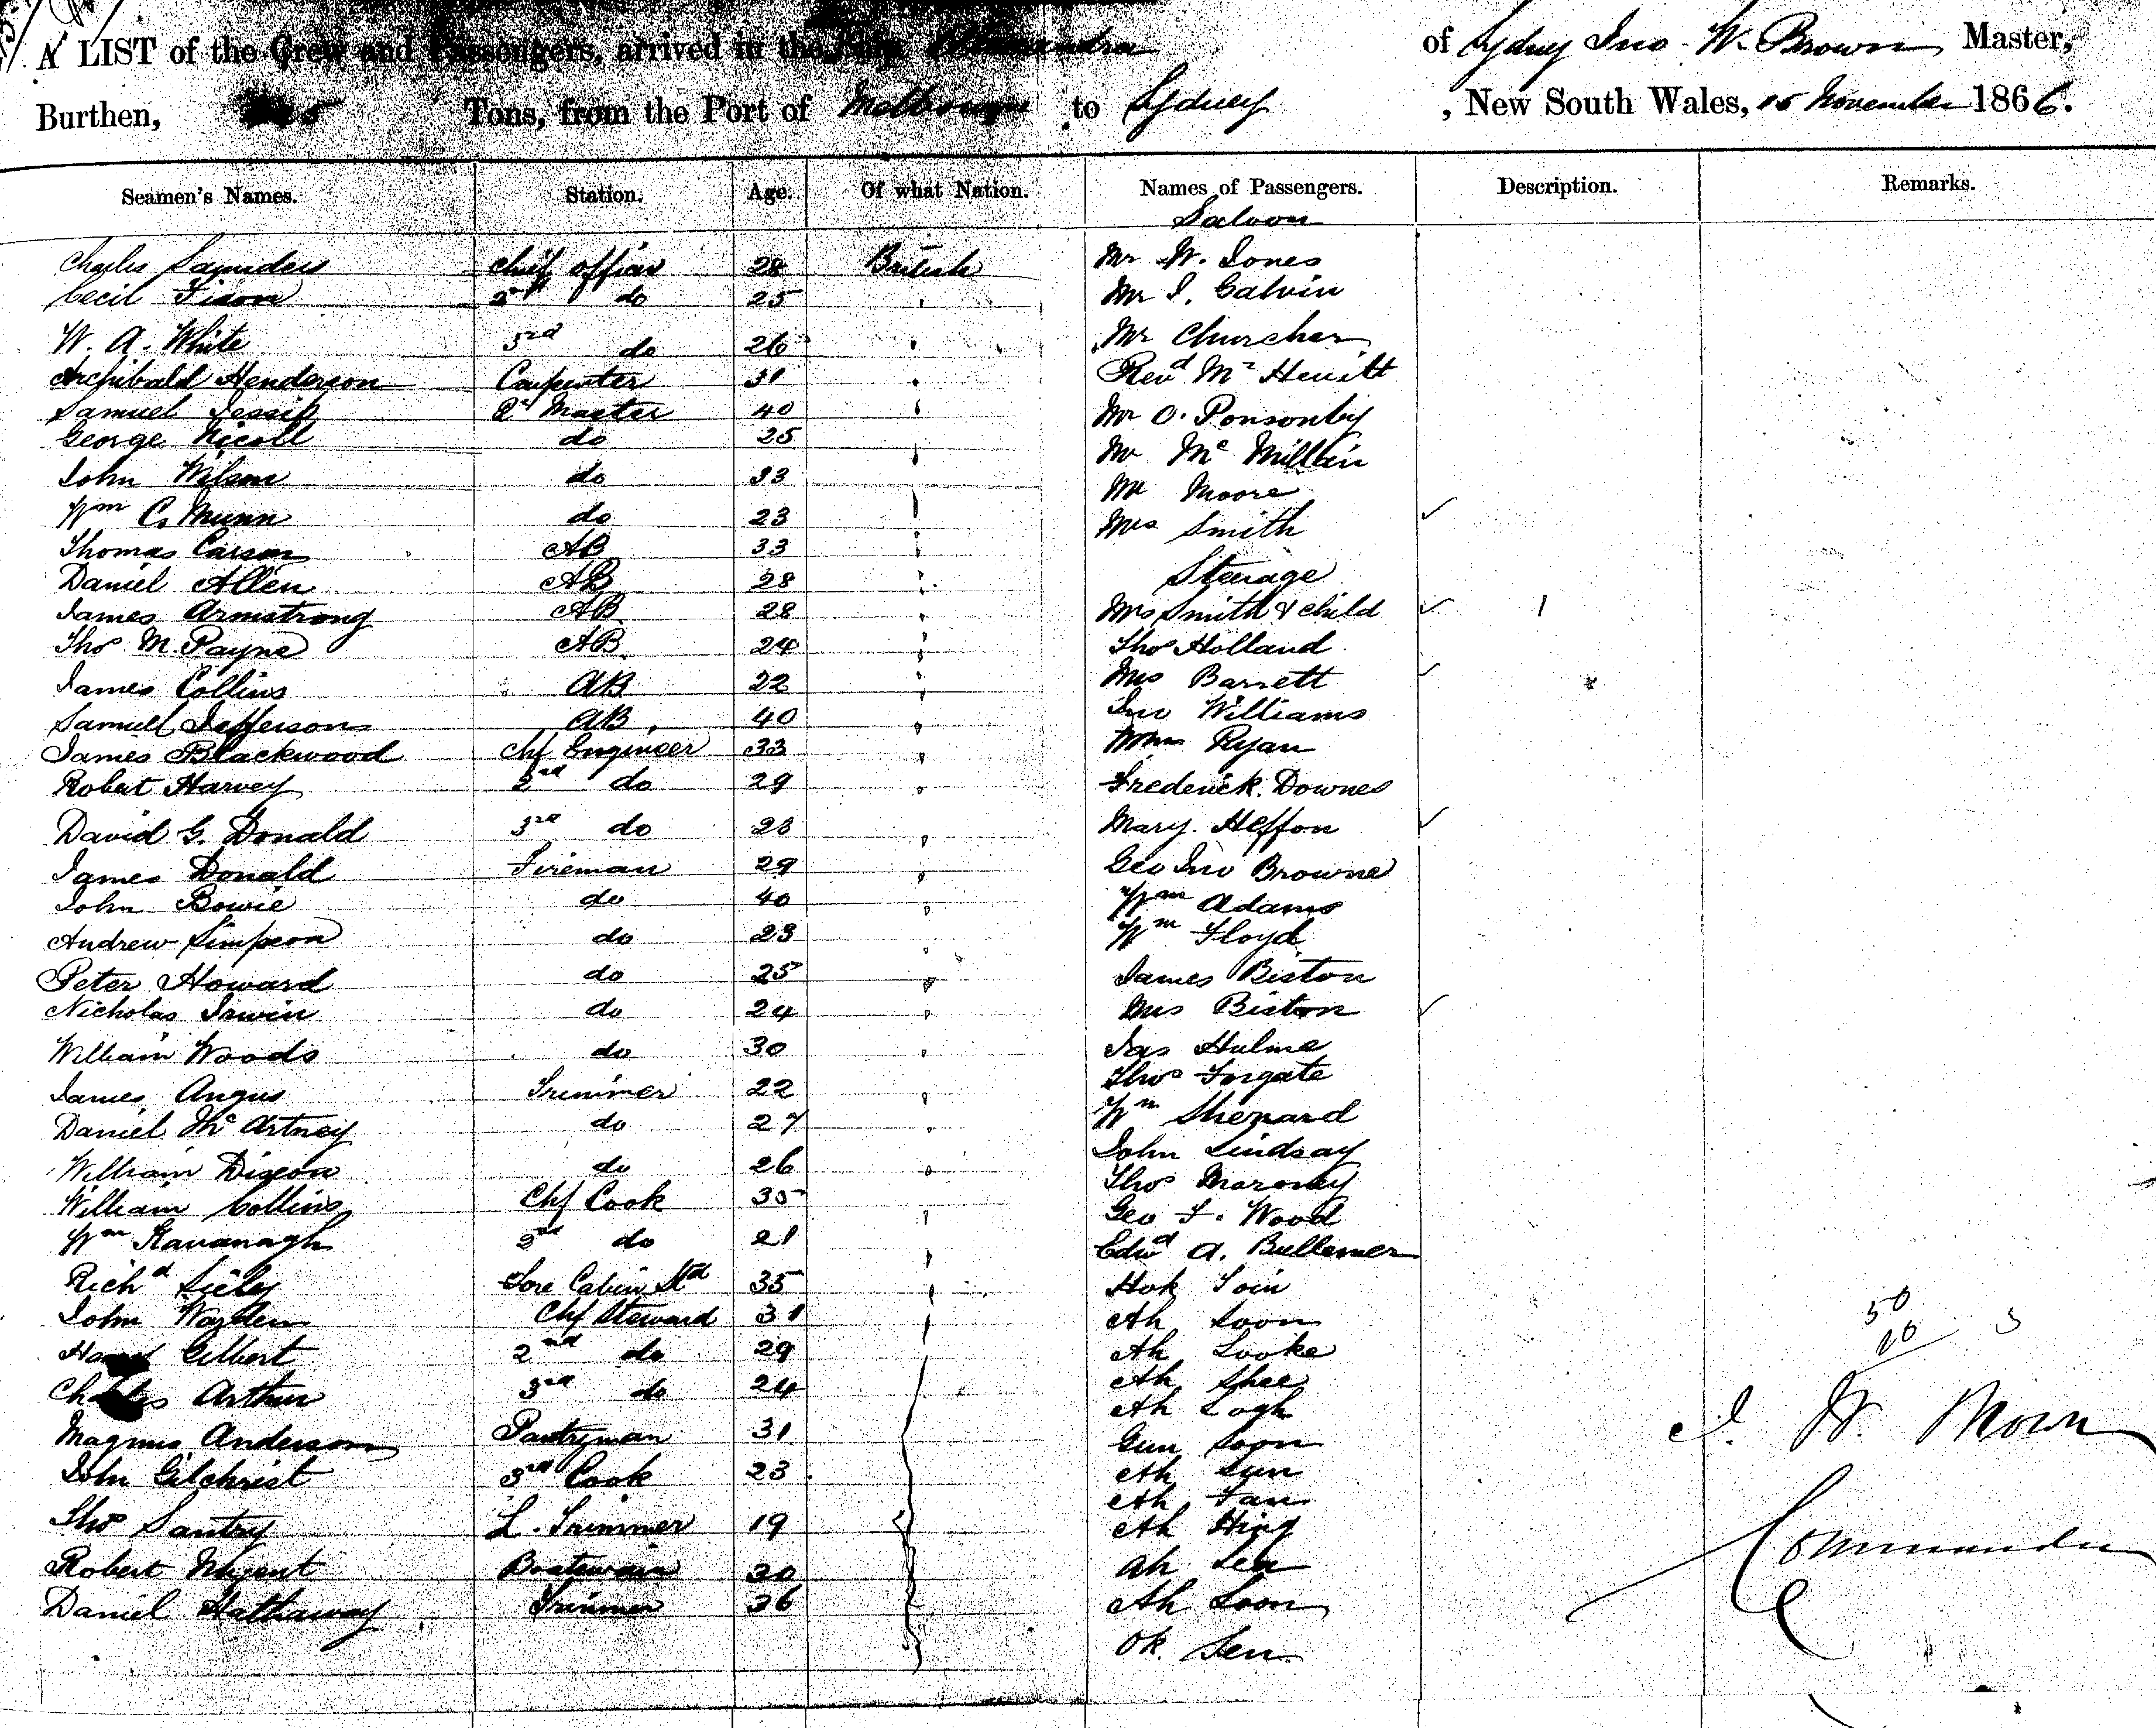 A LIST of the Crew and Passengers, arrived in the Ship Alexandra of Sydney Jno. W. Brown Master,
Burthen, Tons, from the Port of Melbourne to Sydney , New South Wales, 15 November 1866.
Seamen's Names. Station. Age. Of what Nation. Names of Passengers. Description. Remarks.
Saloon
Charles Saunders chief officer 28 British Mr W. Jones
Cecil Fison 2nd do 25 Mr J. Galvin
W. A. White 3rd do 26 Mr Churcher
Archibald Henderson Carpenter 31 Revd Mr Hewitt
Samuel Jessip Qr Master 40 Mr O. Ponsonby
George Nicoll do 25 Mr Mc Millan
John Wilson do 33 Mr Moore
Wm C. Munn do 23 Mrs Smith
Thomas Carson AB 33
Daniel Allen AB 28 Steerage
James Armstrong AB 28 Mrs Smith & child 1
Thos M. Payne AB 24 Thos Holland
James Collins AB 22 Mrs Barrett
Samuel Jefferson AB 40 Jno Williams
James Blackwood Chf Engineer 33 Ryan
Robert Harvey 2nd do 29 Frederick Downes
David G. Donald 3rd do 23 Mary Heffon
James Donald Fireman 29 Geo Jno Browne
John Bowie do 40 Wm Adams
Andrew Simpson do 23 Wm Floyd
Peter Howard do 25 James Biston
Nicholas Irwin do 24 Mrs Biston
William Woods do 30 Jas Hulme
James Angus Trimmer 22 Thos Forgate
Daniel McArtney do 27 Wm Sherrard
William Dixon do 26 John Lindsay
William Collins Chf Cook 35 Thos Maroney
Wm Kavanagh 2nd do 21 Geo F. Wood
Edwd A. Bullemer
Richd Fore Cabin Std 35 Hok
John Chf Steward 31 Ah Soon
Gilbert 2nd do 29 Ah Looke
Charles Arthur 3rd do 24 Ah Shee
Ah Logh
Magnus Anderson Pantryman 31 Gun Soon
John Gilchrist 3rd Cook 23 Ah Sun
Ah
Thos Santry L. Trimmer 19 Ah Hing
Robert Nugent Boatswain 30 Ah
Daniel Hathaway Trimmer 36 Ah Soon
Ok Sen
50
20 3
J. W. Brown
Commander